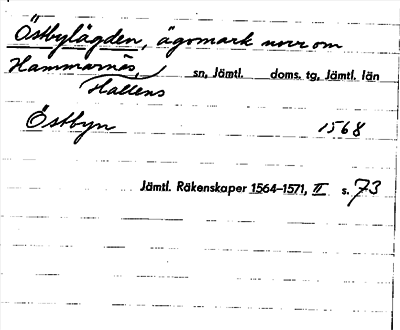 Östbylägden, ägomark norr om
Hammarnäs,
Hallens sn, Jämtl. doms. tg, Jämtl. län
Östbyn 1568
Jämtl. Räkenskaper 1564–1571, II s. 73